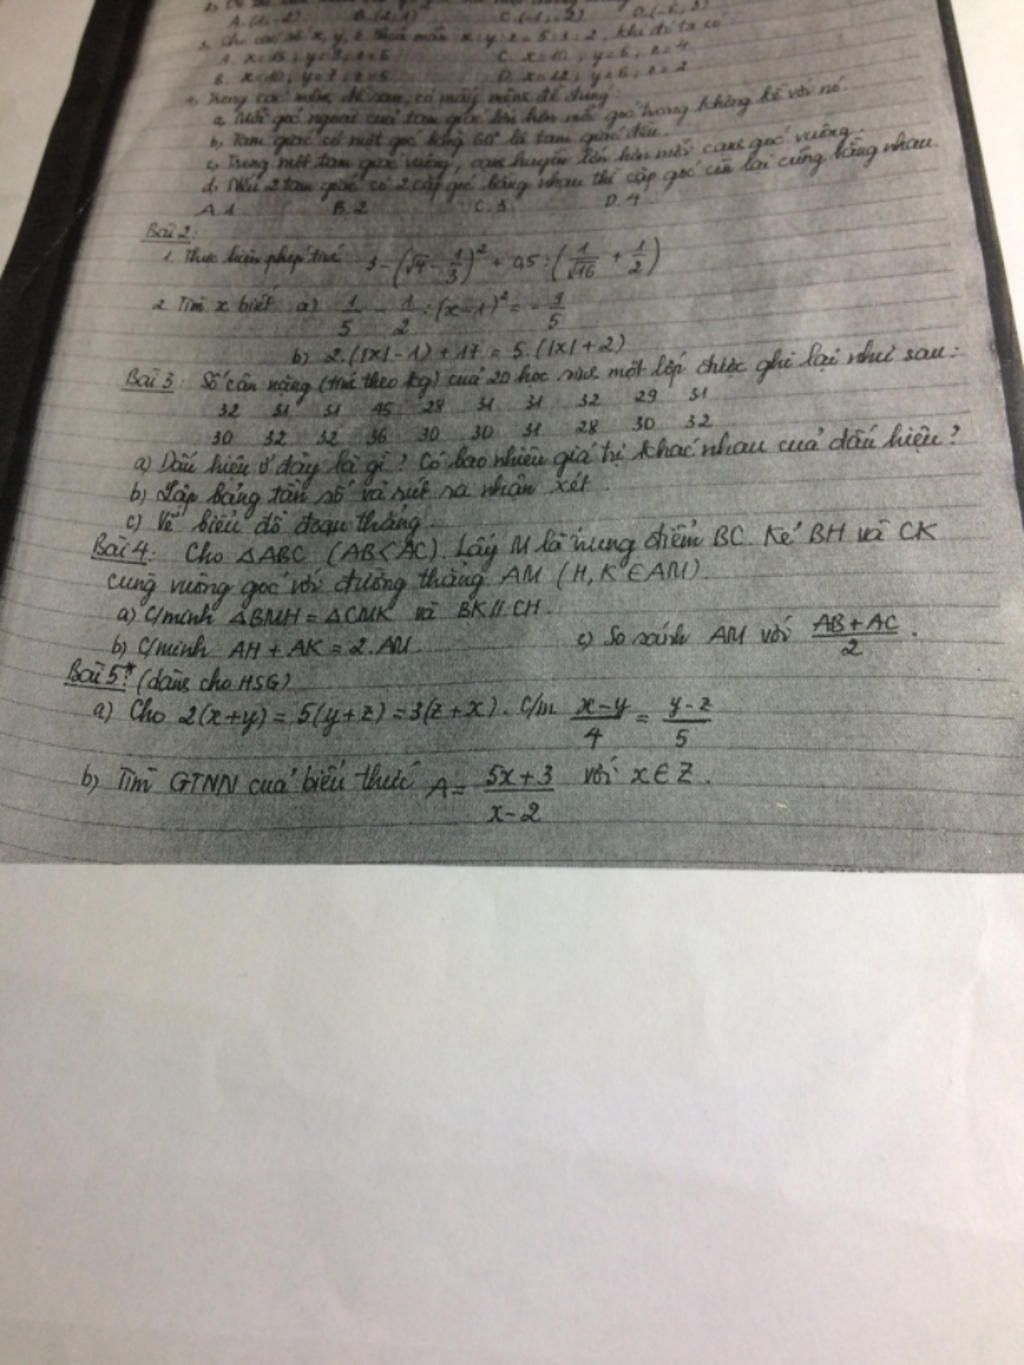 A. (1, -2) B. (2, 1) C. (-1, -2)
3. Cho các số x, y, z thỏa mãn x:y:z = 5:3:2, khi đó ta có
C. x=10, y=6, z=4
B. x=10, y=7, z=5 D. x=12, y=6, z=2
4. Trong các mệnh đề sau, có mấy mệnh đề đúng:
a, Mỗi góc ngoài của tam giác lớn hơn mỗi góc trong không kề với nó.
b, Tam giác có một góc bằng 60° là tam giác đều.
c, Trong một tam giác vuông, cạnh huyền lớn hơn mỗi cạnh góc vuông.
d, Nếu 2 tam giác có 2 cặp góc bằng nhau thì cặp góc còn lại cũng bằng nhau.
A. 1 B. 2 C. 3 D. 4
Bài 2:
1. Thực hiện phép tính 3 - (√4 - 1/3)² + 0,5 : (1/√16 + 1/2)
2. Tìm x biết a) 1/5 - 1/2 : (x-1)² = -
b) 2.(|x|-1) + 17 = 5.(|x|+2)
Bài 3: Số cân nặng (tính theo kg) của 20 học sinh một lớp được ghi lại như sau:
32 31 31 45 28 31 31 32 29 31
30 32 32 36 30 30 31 28 30 32
a) Dấu hiệu ở đây là gì? Có bao nhiêu giá trị khác nhau của dấu hiệu?
b) Lập bảng tần số và rút ra nhận xét.
c) Vẽ biểu đồ đoạn thẳng.
Bài 4: Cho △ABC (AB<AC). Lấy M là trung điểm BC. Kẻ BH và CK
cùng vuông góc với đường thẳng AM (H, K ∈ AM).
a) C/minh △BMH = △CMK và BK // CH.
b) C/minh AH + AK = 2.AM. c) So sánh AM với (AB+AC)/2.
Bài 5*: (dành cho HSG)
a) Cho 2(x+y) = 5(y+z) = 3(z+x). C/m (x-y)/4 = (y-z)/5
b) Tìm GTNN của biểu thức A = (5x+3)/(x-2) với x ∈ Z.